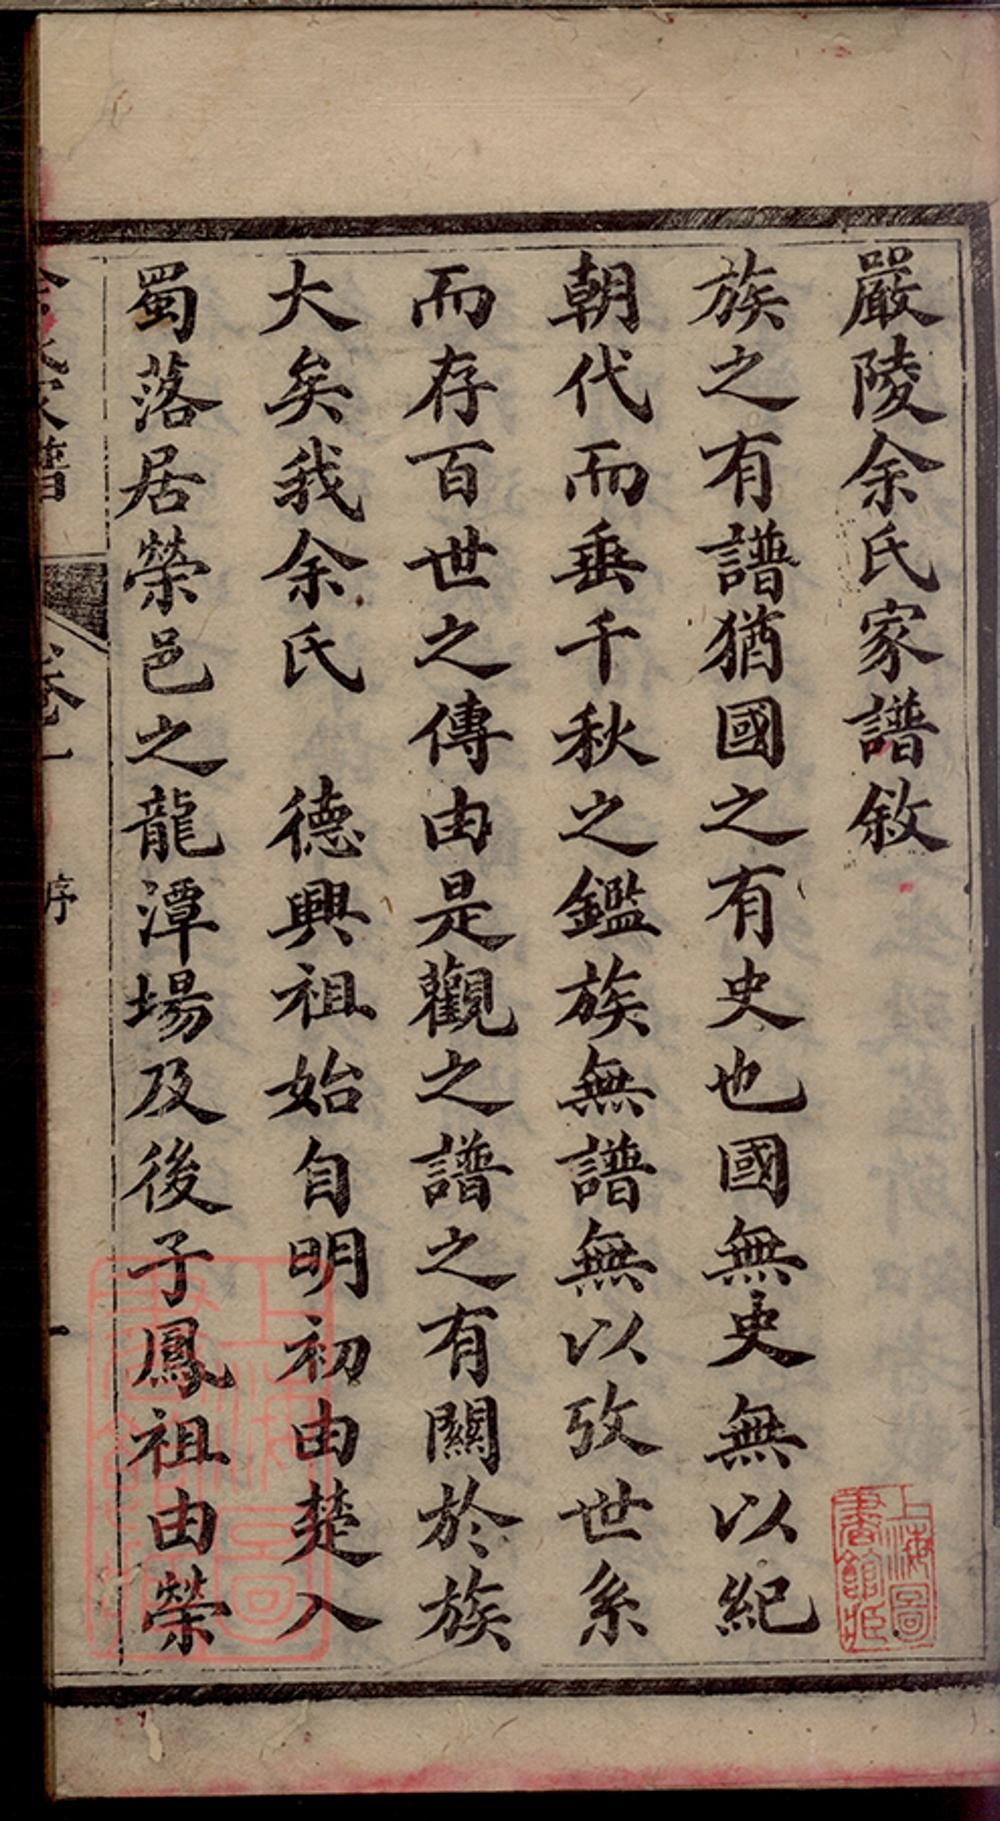 嚴陵余氏家譜敘
族之有譜猶國之有史也國無史無以紀
朝代而垂千秋之鑑族無譜無以攷世系
而存百世之傳由是觀之譜之有關於族
大矣我余氏　德興祖始自明初由楚入
蜀落居榮邑之龍潭場及後子鳳祖由榮
余氏家譜
卷一
序
一
上海圖書館藏